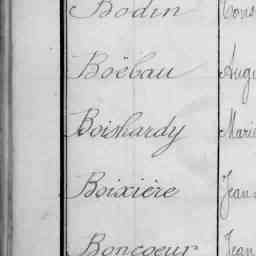 Bodin
Boëbau
Boishardy Marie
Boixière Jean
Boncoeur Jean